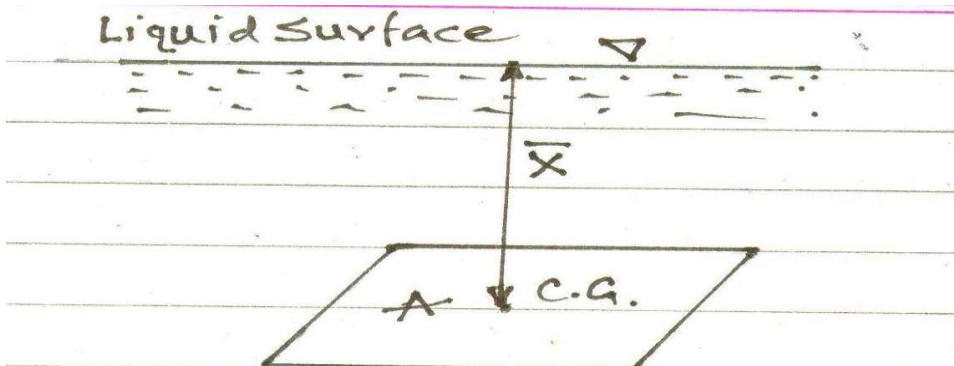 Liquid Surface
X̅
A
C.G.